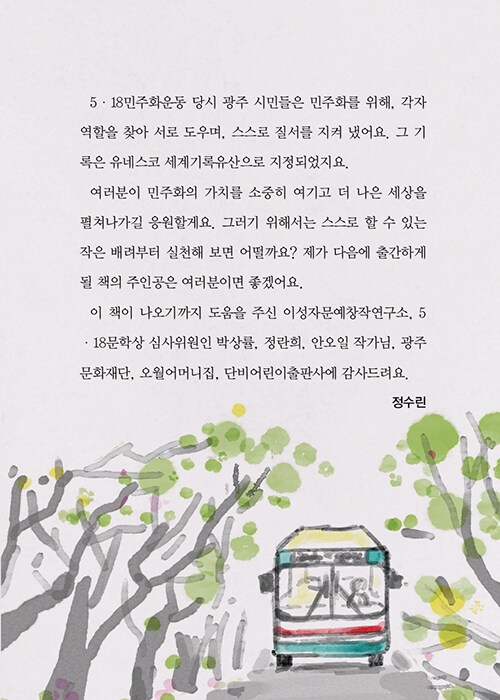 5 · 18민주화운동 당시 광주 시민들은 민주화를 위해, 각자
역할을 찾아 서로 도우며, 스스로 질서를 지켜 냈어요. 그 기
록은 유네스코 세계기록유산으로 지정되었지요.
여러분이 민주화의 가치를 소중히 여기고 더 나은 세상을
펼쳐나가길 응원할게요. 그러기 위해서는 스스로 할 수 있는
작은 배려부터 실천해 보면 어떨까요? 제가 다음에 출간하게
될 책의 주인공은 여러분이면 좋겠어요.
이 책이 나오기까지 도움을 주신 이성자문예창작연구소, 5
· 18문학상 심사위원인 박상률, 정란희, 안오일 작가님, 광주
문화재단, 오월어머니집, 단비어린이출판사에 감사드려요.
정수린